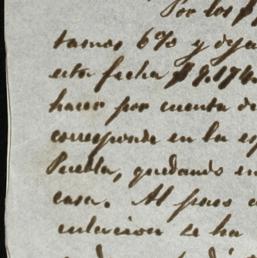 Por los
tamos 6% y deja
esta fecha $
hacer por cuenta de
corresponde en la es
Puebla, quedando en
casa. Al paso
culacion se ha